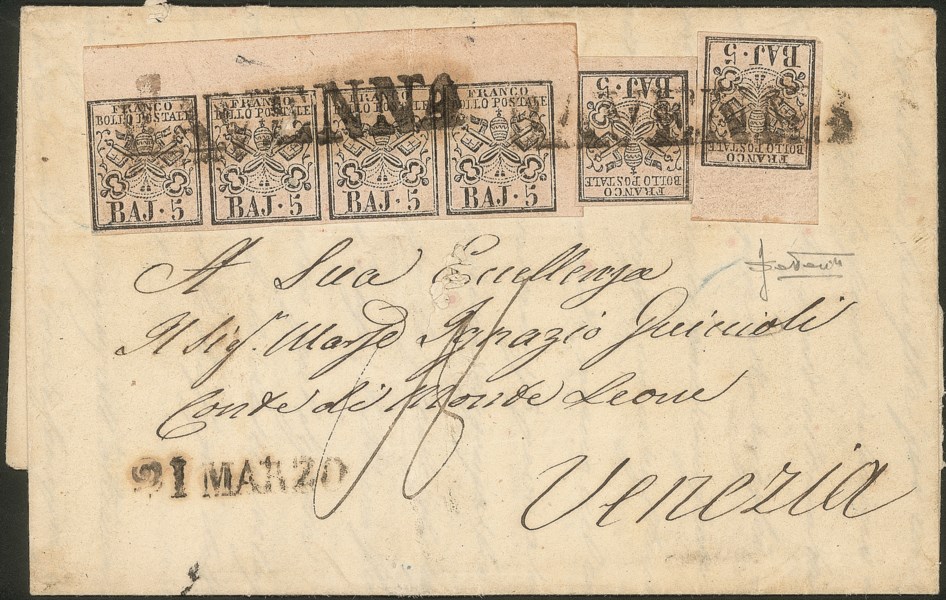 FRANCO BOLLO POSTALE BAJ·5
FRANCO BOLLO POSTALE BAJ·5
FRANCO BOLLO POSTALE BAJ·5
FRANCO BOLLO POSTALE BAJ·5
FRANCO BOLLO POSTALE BAJ·5
FRANCO BOLLO POSTALE BAJ·5
A Sua Eccellenza
Il Sig. Marse Ignazio Guiccioli
Conte di Monte Leone
21 MARZO
Venezia